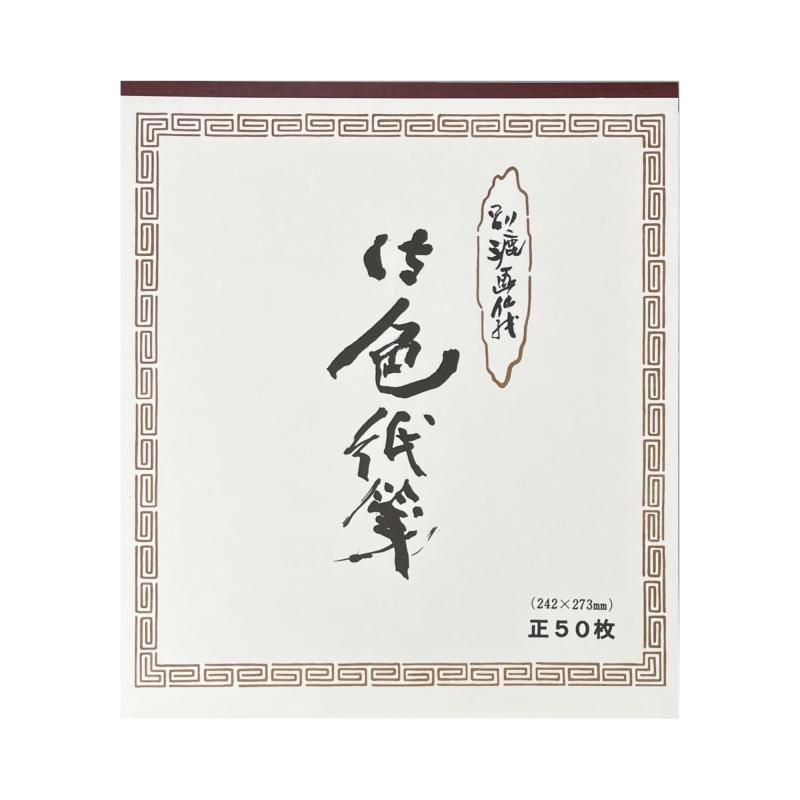 別漉画仙紙
色紙箋
(242×273mm)
正50枚